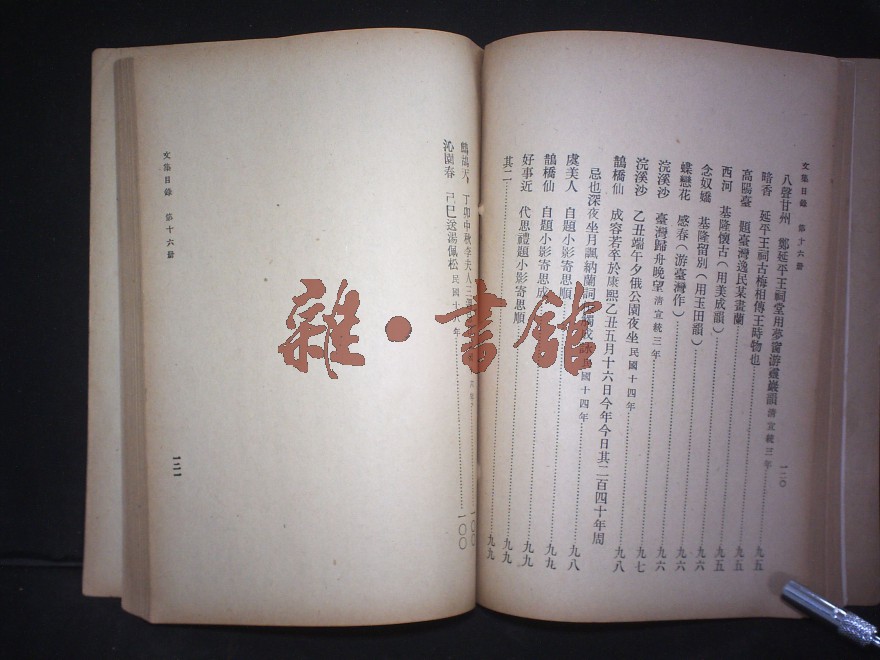 文集目錄 第十六册
一二〇
八聲甘州 鄭延平王祠堂用夢窗游靈巖韻 清宣統三年 九五
暗香 延平王祠古梅相傳王時物也 九五
高陽臺 題臺灣逸民某畫蘭 九五
西河 基隆懷古(用美成韻) 九五
念奴嬌 基隆留別(用玉田韻) 九六
蝶戀花 感春(游臺灣作) 九六
浣溪沙 臺灣歸舟晚望 清宣統三年 九六
浣溪沙 乙丑端午夕俄公園夜坐 民國十四年 九七
鵲橋仙 成容若卒於康熙乙丑五月十六日今年今日其二百四十年周
忌也深夜坐月諷納蘭詞 國十四年 九八
虞美人 自題小影寄思順 九八
鵲橋仙 自題小影寄思成 九九
好事近 代思禮題小影寄思順 九九
其二 九九
鷓鴣天 丁卯中秋李夫人三 一〇〇
沁園春 己巳送湯佩松 民國十八年 一〇〇
文集目錄 第十六册
一二一
雜·書館